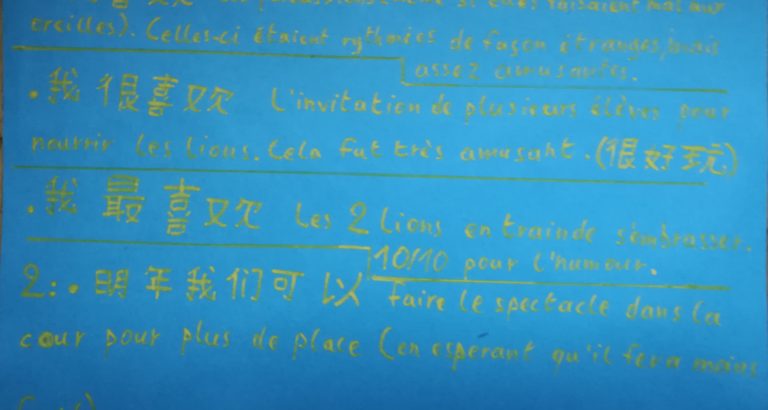 les percussions même si elles faisaient mal aux
oreilles). Celles-ci étaient rythmées de façon étranges, mais
assez amusantes.
. 我很喜欢 L'invitation de plusieurs élèves pour
nourrir les lions. Cela fut très amusant. (很好玩)
. 我最喜欢 les 2 lions en train de s'embrasser.
10/10 pour l'humour.
2: . 明年我们可以 faire le spectacle dans la
cour pour plus de place (en espérant qu'il fera moins